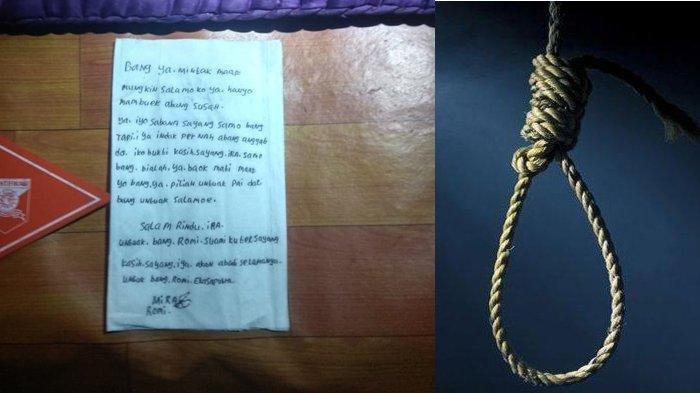 Bang ya. mintak maaf
mungkin salamoko ya. hanyo
mambuek abang susah.
ya. iyo sabana sayang samo bang
Tapi. iya indak pernah abang anggab
do. iko bukti kasih sayang. iRA. samo
bang. bialah. ya. baok mati
yo bang. ya. piliah untuak pai dari
bang untuak salamoe.
Salam Rindu. iRA.
untuak. bang. Romi. Suami ku tersayang
kasih. sayang. iya. akan abadi selamanya.
untuk bang. Romi.
MiRA
Romi.